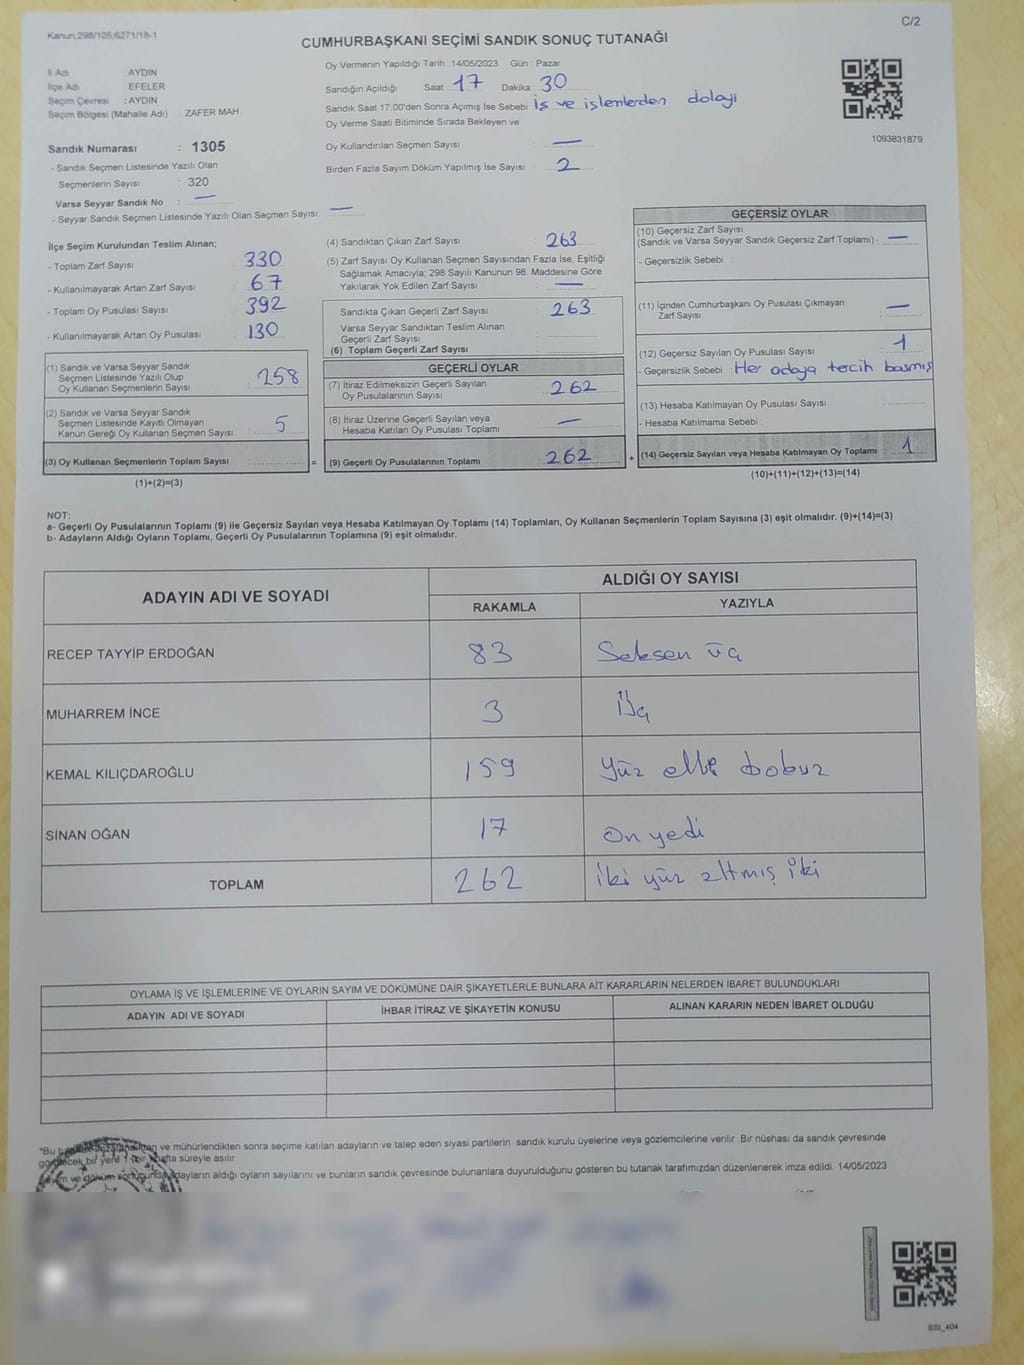 Kanun,298/105;6271/16-1
C/2
CUMHURBAŞKANI SEÇİMİ SANDIK SONUÇ TUTANAĞI
İl Adı : AYDIN
İlçe Adı : EFELER
Seçim Çevresi : AYDIN
Seçim Bölgesi (Mahalle Adı) : ZAFER MAH.
Oy Vermenin Yapıldığı Tarih : 14/05/2023 Gün : Pazar
Sandığın Açıldığı Saat 17 Dakika 30
Sandık Saat 17:00'den Sonra Açımış İse Sebebi İş ve işlemlerden dolayı
Oy Verme Saati Bitiminde Sırada Bekleyen ve
Oy Kullandırılan Seçmen Sayısı : —
Birden Fazla Sayım Döküm Yapılmış İse Sayısı : 2
1093831879
Sandık Numarası : 1305
- Sandık Seçmen Listesinde Yazılı Olan
Seçmenlerin Sayısı : 320
Varsa Seyyar Sandık No : —
- Seyyar Sandık Seçmen Listesinde Yazılı Olan Seçmen Sayısı: —
İlçe Seçim Kurulundan Teslim Alınan;
- Toplam Zarf Sayısı : 330
- Kullanılmayarak Artan Zarf Sayısı : 67
- Toplam Oy Pusulası Sayısı : 392
- Kullanılmayarak Artan Oy Pusulası : 130
(1) Sandık ve Varsa Seyyar Sandık
Seçmen Listesinde Yazılı Olup
Oy Kullanan Seçmenlerin Sayısı : 258
(2) Sandık ve Varsa Seyyar Sandık
Seçmen Listesinde Kayıtlı Olmayan
Kanun Gereği Oy Kullanan Seçmen Sayısı : 5
(3) Oy Kullanan Seçmenlerin Toplam Sayısı : =
(1)+(2)=(3)
(4) Sandıktan Çıkan Zarf Sayısı : 263
(5) Zarf Sayısı Oy Kullanan Seçmen Sayısından Fazla İse, Eşitliği
Sağlamak Amacıyla; 298 Sayılı Kanunun 98. Maddesine Göre
Yakılarak Yok Edilen Zarf Sayısı : —
Sandıkta Çıkan Geçerli Zarf Sayısı : 263
Varsa Seyyar Sandıktan Teslim Alınan
Geçerli Zarf Sayısı :
(6) Toplam Geçerli Zarf Sayısı :
GEÇERLİ OYLAR
(7) İtiraz Edilmeksizin Geçerli Sayılan
Oy Pusulalarının Sayısı : 262
(8) İtiraz Üzerine Geçerli Sayılan veya
Hesaba Katılan Oy Pusulası Toplamı : —
(9) Geçerli Oy Pusulalarının Toplamı : 262 +
GEÇERSİZ OYLAR
(10) Geçersiz Zarf Sayısı
(Sandık ve Varsa Seyyar Sandık Geçersiz Zarf Toplamı) : —
- Geçersizlik Sebebi :
(11) İçinden Cumhurbaşkanı Oy Pusulası Çıkmayan
Zarf Sayısı : —
(12) Geçersiz Sayılan Oy Pusulası Sayısı : 1
- Geçersizlik Sebebi : Her adaya tercih basmış
(13) Hesaba Katılmayan Oy Pusulası Sayısı :
- Hesaba Katılmama Sebebi :
(14) Geçersiz Sayılan veya Hesaba Katılmayan Oy Toplamı : 1
(10)+(11)+(12)+(13)=(14)
NOT:
a- Geçerli Oy Pusulalarının Toplamı (9) ile Geçersiz Sayılan veya Hesaba Katılmayan Oy Toplamı (14) Toplamları, Oy Kullanan Seçmenlerin Toplam Sayısına (3) eşit olmalıdır. (9)+(14)=(3)
b- Adayların Aldığı Oyların Toplamı, Geçerli Oy Pusulalarının Toplamına (9) eşit olmalıdır.
ADAYIN ADI VE SOYADI
ALDIĞI OY SAYISI
RAKAMLA YAZIYLA
RECEP TAYYİP ERDOĞAN 83 Seksen üç
MUHARREM İNCE 3 Üç
KEMAL KILIÇDAROĞLU 159 Yüz elli dokuz
SİNAN OĞAN 17 On yedi
TOPLAM 262 iki yüz altmış iki
OYLAMA İŞ VE İŞLEMLERİNE VE OYLARIN SAYIM VE DÖKÜMÜNE DAİR ŞİKAYETLERLE BUNLARA AİT KARARLARIN NELERDEN İBARET BULUNDUKLARI
ADAYIN ADI VE SOYADI İHBAR İTİRAZ VE ŞİKAYETİN KONUSU ALINAN KARARIN NEDEN İBARET OLDUĞU
*Bu ve mühürlendikten sonra seçime katılan adayların ve talep eden siyasi partilerin sandık kurulu üyelerine veya gözlemcilerine verilir. Bir nüshası da sandık çevresinde
bir yere 1 bir hafta süreyle asılır.
adayların aldığı oyların sayılarını ve bunların sandık çevresinde bulunanlara duyurulduğunu gösteren bu tutanak tarafımızdan düzenlenerek imza edildi. 14/05/2023
SSI_404